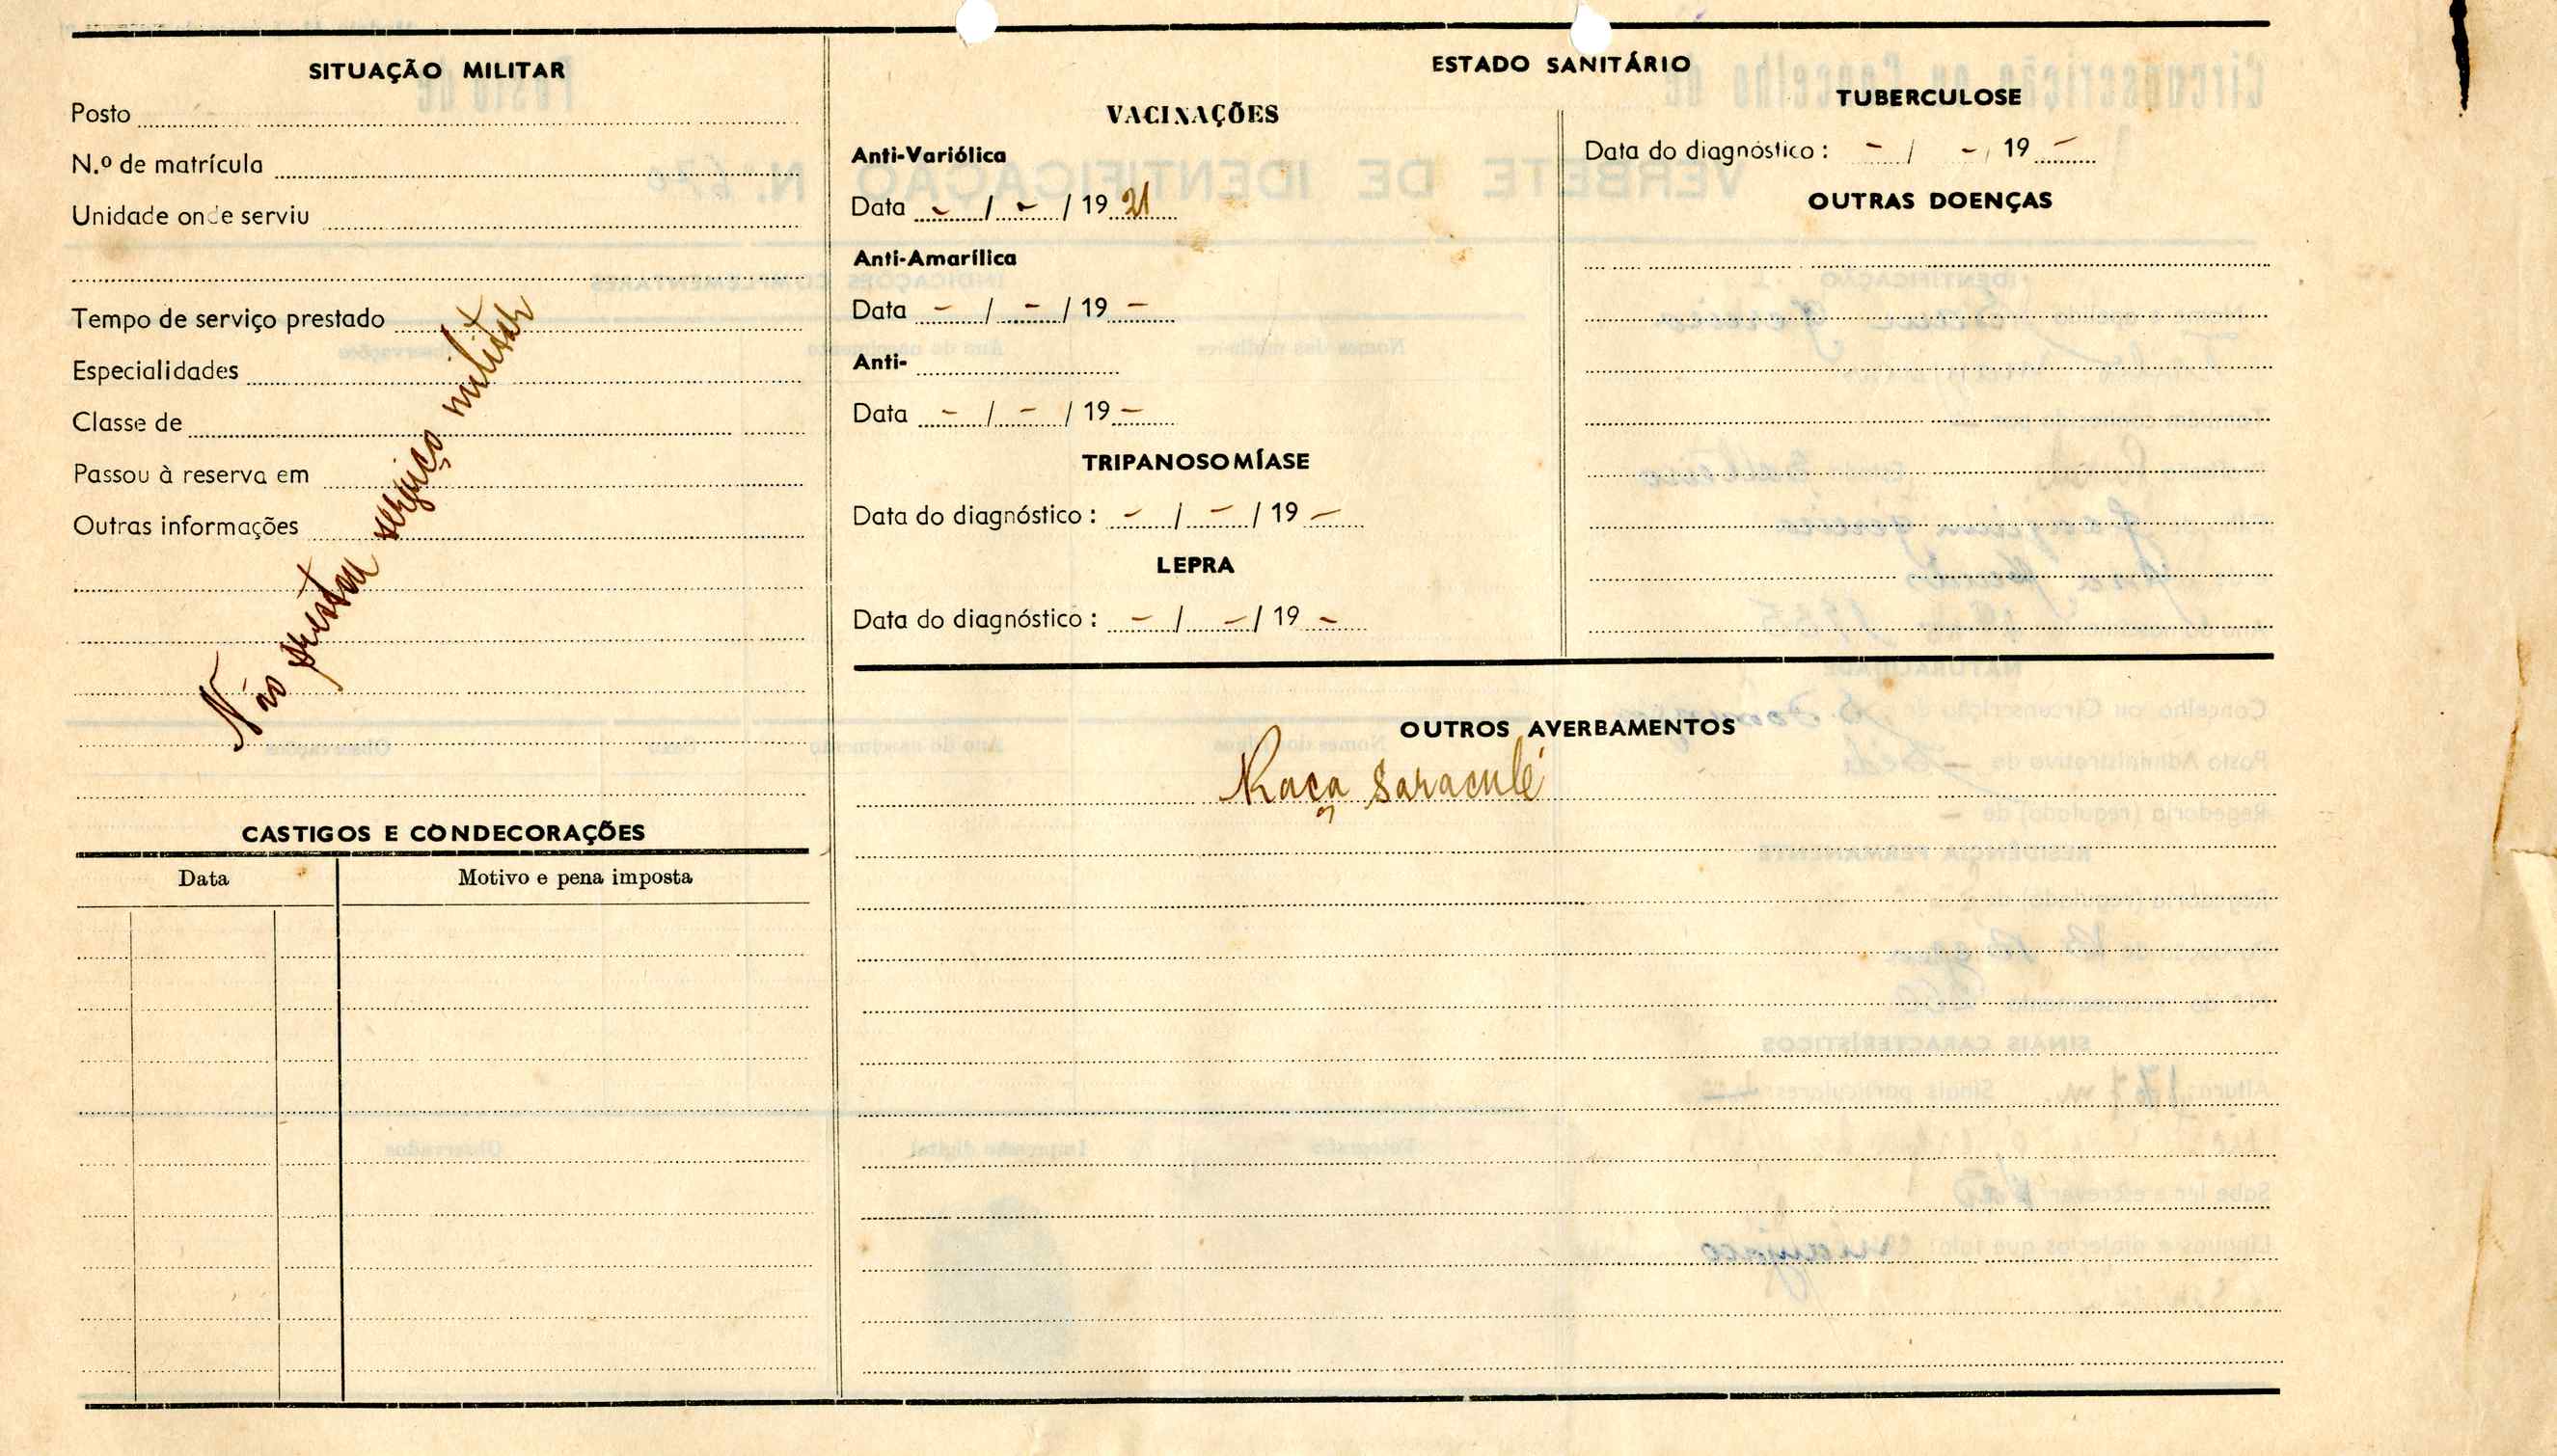 SITUAÇÃO MILITAR
Posto
N.º de matrícula
Unidade onde serviu
Tempo de serviço prestado
Especialidades
Classe de
Passou à reserva em
Outras informações
Não prestou serviço militar
CASTIGOS E CONDECORAÇÕES
Data Motivo e pena imposta
ESTADO SANITÁRIO
VACINAÇÕES
Anti-Variólica
Data - / - / 19 21
Anti-Amarílica
Data - / - / 19 -
Anti-
Data - / - / 19 -
TRIPANOSOMÍASE
Data do diagnóstico : - / - / 19 -
LEPRA
Data do diagnóstico : - / - / 19 -
TUBERCULOSE
Data do diagnóstico : - / - / 19 -
OUTRAS DOENÇAS
OUTROS AVERBAMENTOS
Raça Saraculé